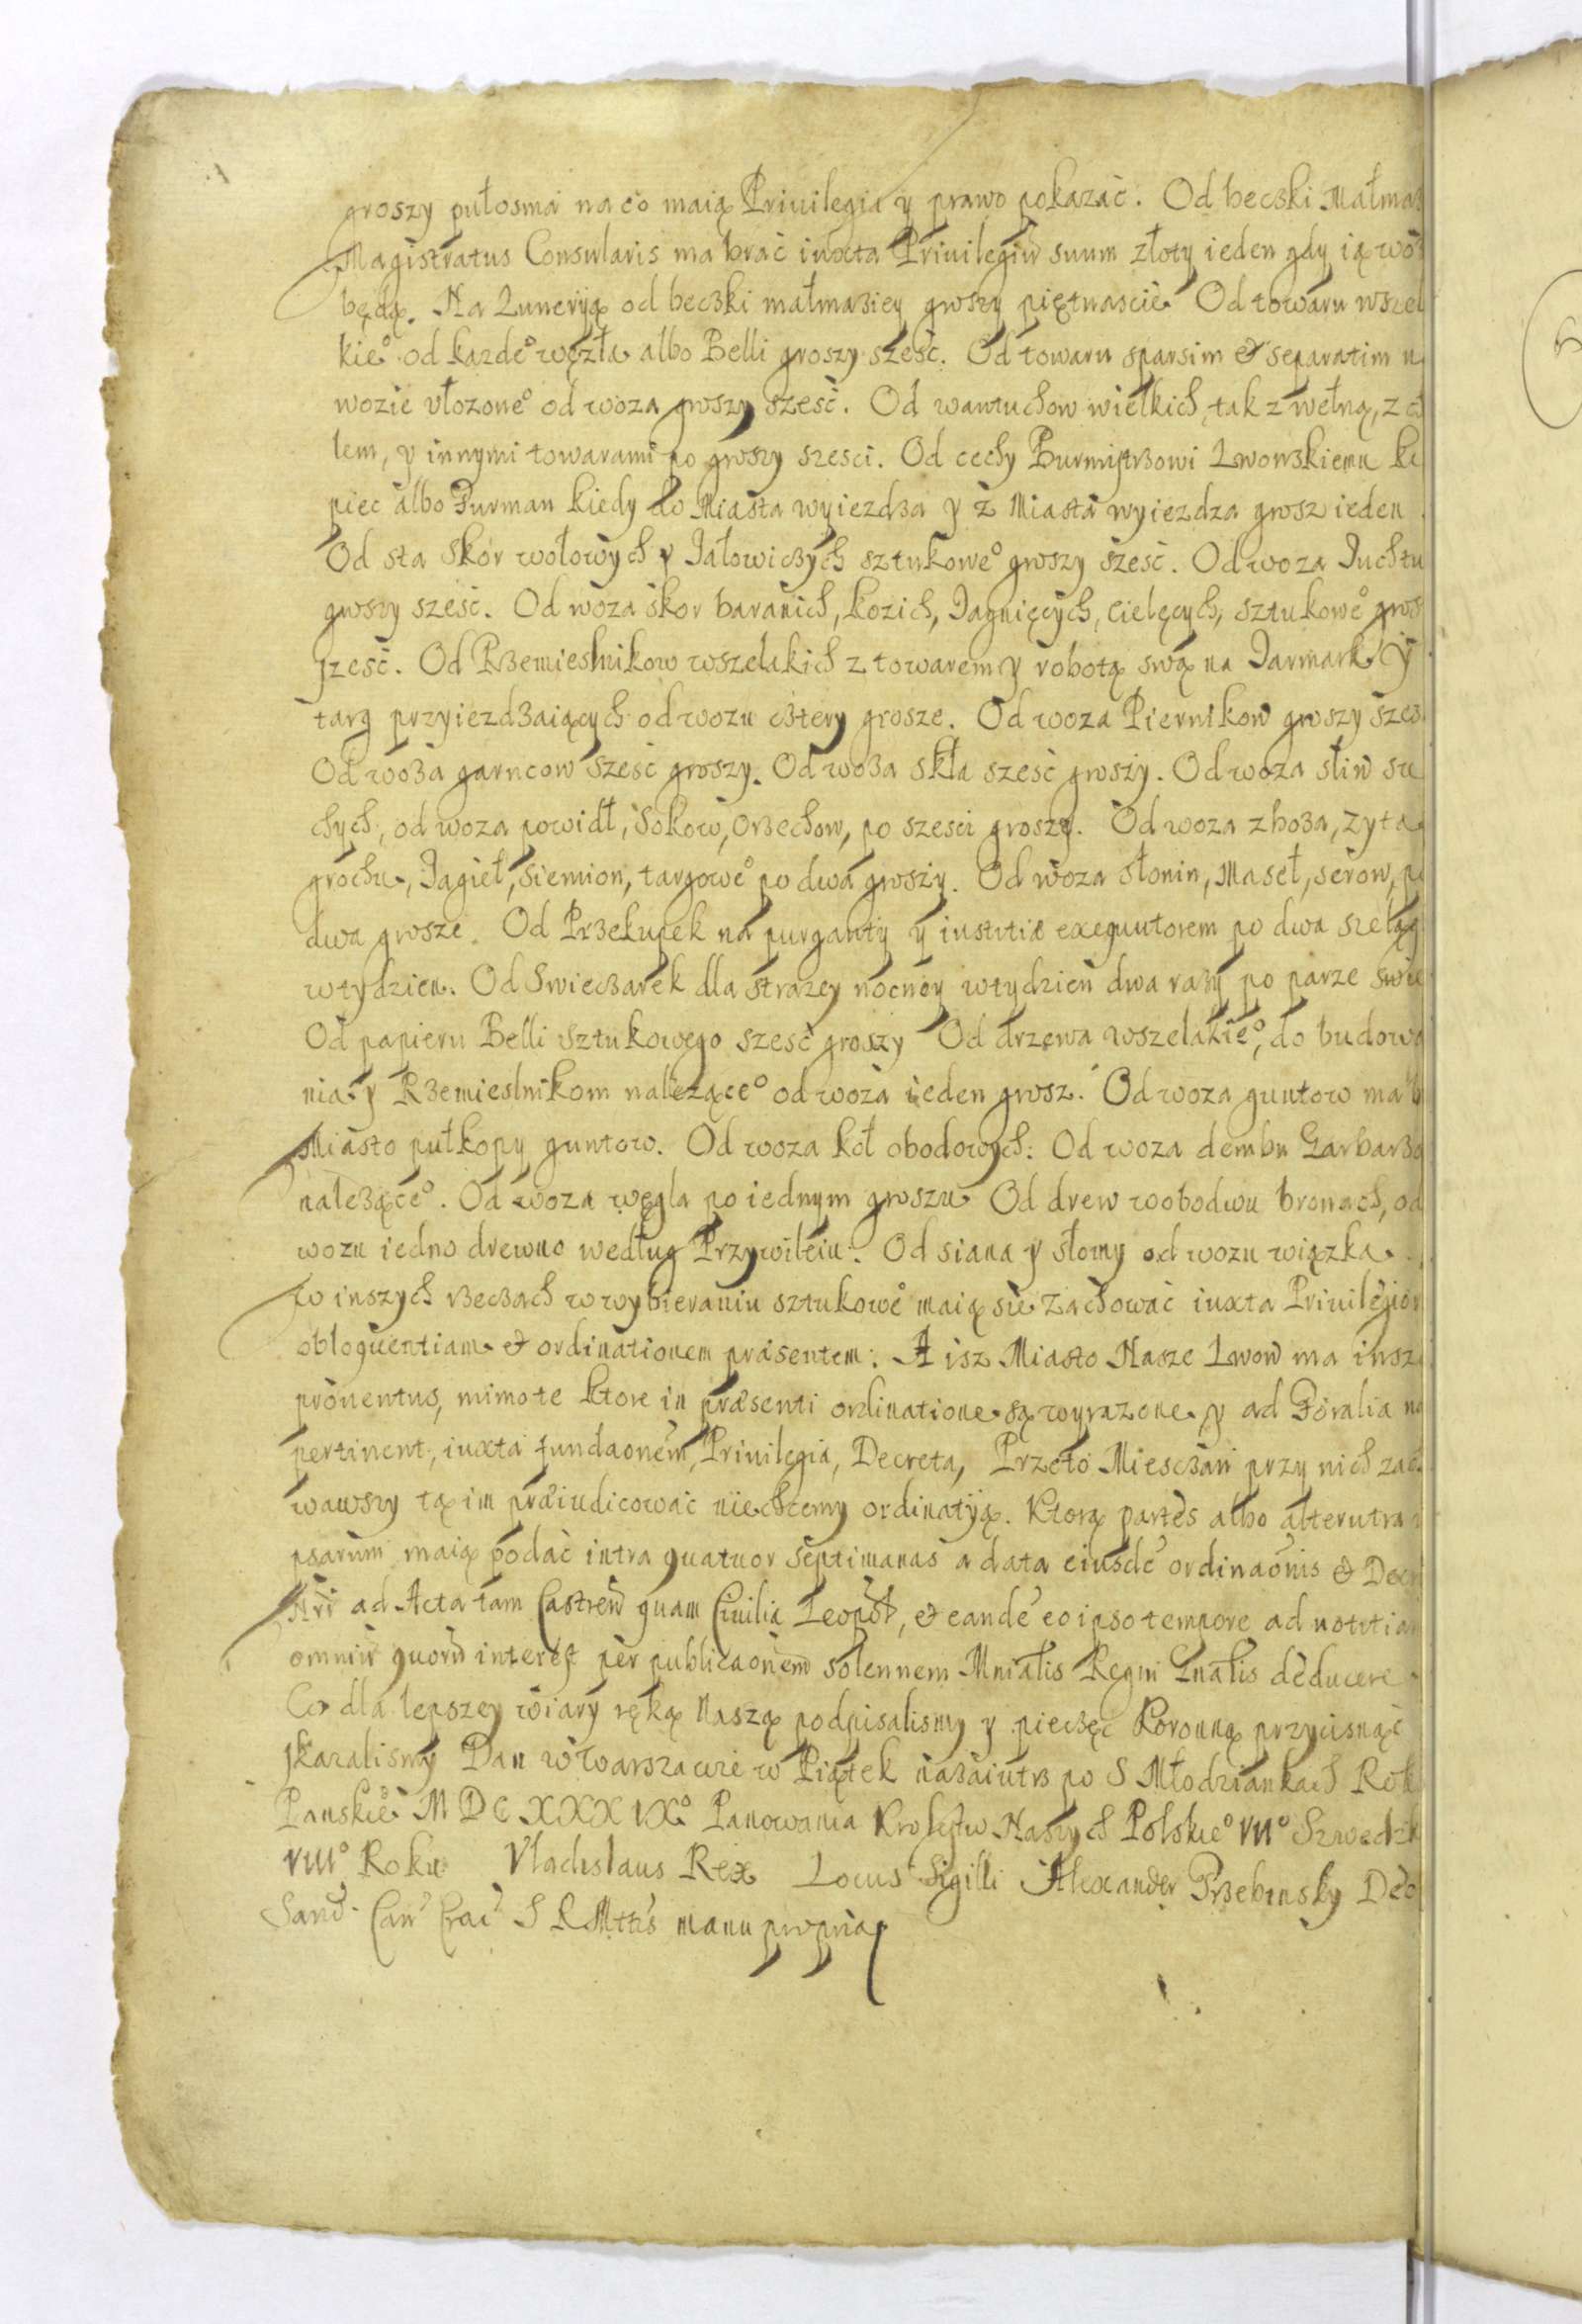 groszy pułosma na co maią Priuilegia y prawo pokazać. Od beczki Małmaz
Magistratus Consularis ma brać iuxta Priuilegiū suum złoty ieden gdy ią
będą. Na Luneryią od beczki małmaziey groszy piętnascie Od towaru wszel
kie° od kazde° węzła albo Belli groszy szesć. Od towaru sparsim & separatim
wozie vłozone° od woza groszy szesć. Od wantuchow wielkich, tak z wełną, z
lem, y innymi towarami po groszy szesci. Od cechy Burmistrzowi Lwowskiemu
piec albo Furman kiedy do Miasta wyiezdza y z Miasta wyiezdza grosz ieden
Od sta skór wołowych y Jałowiczych sztukowe° groszy szesć. Od woza Juchtu
groszy szesć. Od woza skor baranich, kozich, Jagnięcych, cielęcych, sztukowe° gros
szesć. Od Rzemieslnikow wszelakich z towarem y robotą swą na Jarmark y
targ przyiezdzaiących od wozu cztery grosze. Od woza Piernikow groszy szes
Od woza garncow szesć groszy. Od woza skła szesć groszy. Od woza sliw su
chych, od woza powidł, sokow, orzechow, po szesci groszy. Od woza zboza, zyta
grochu, Jagieł, siemion, targowe° po dwa groszy. Od woza słonin, Maseł, serow,
dwa grosze. Od Przekupek na purganty y iustitiæ exequutorem po dwa szeląg
w tydzien. Od Swieczarek dla strazey nocney w tydzień dwa razy po parze swie
Od papieru Belli sztukowego szesć groszy Od drzewa wszelakie°, do budowa
nia y Rzemieslnikom nalezące° od woza ieden grosz. Od woza guntow ma
Miasto pułkopy guntow. Od woza kół obodowych: Od woza dembu Garbarzo
nalezące°. Od woza węgla po iednym groszu Od drew w obodwu bronach, od
wozu iedno drewno według Przywileiu. Od siana y słomy od wozu wiązka.
w inszych rzeczach w wybieraniu sztukowe° maią sie zachować iuxta Priuilegior
obloquentiam & ordinationem præsentem. A isz Miasto Nasze Lwow ma insz
prouentus, mimo te ktore in præsenti ordinatione są wyrazone y ad Foralia
pertinent, iuxta fundaonem, Priuilegia, Decreta, Przeto Mieszczan przy nich zach
wawszy tą im præiudicować niechcemy ordinatyią. Ktorą partes albo alterutra
psarum maią podać intra quatuor septimanas a data eiusdē ordinaōnis & Decr
Nri ad Acta tam Castreń quam Ciuilia Leopol, et eandē eo ipso tempore ad notitia
omniū quorū interest per publicaōnem solennem Mnialis Regni Gnalis deducere
Co dla lepszey wiary ręką Naszą podpisalismy y pieczęć Koronną przycisnąć
skazalismy Dan w Warszawie w Piątek nazaiutrz po S Młodziankach Rok
Panskie° MDCXXXIX° Panowania Krolestw Naszych Polskie° VII° Szwedzk
VIII° Roku Vladislaus Rex Locus Sigilli Alexander Trzebinsky
Sand. Can Crac S R Mttis manu propria